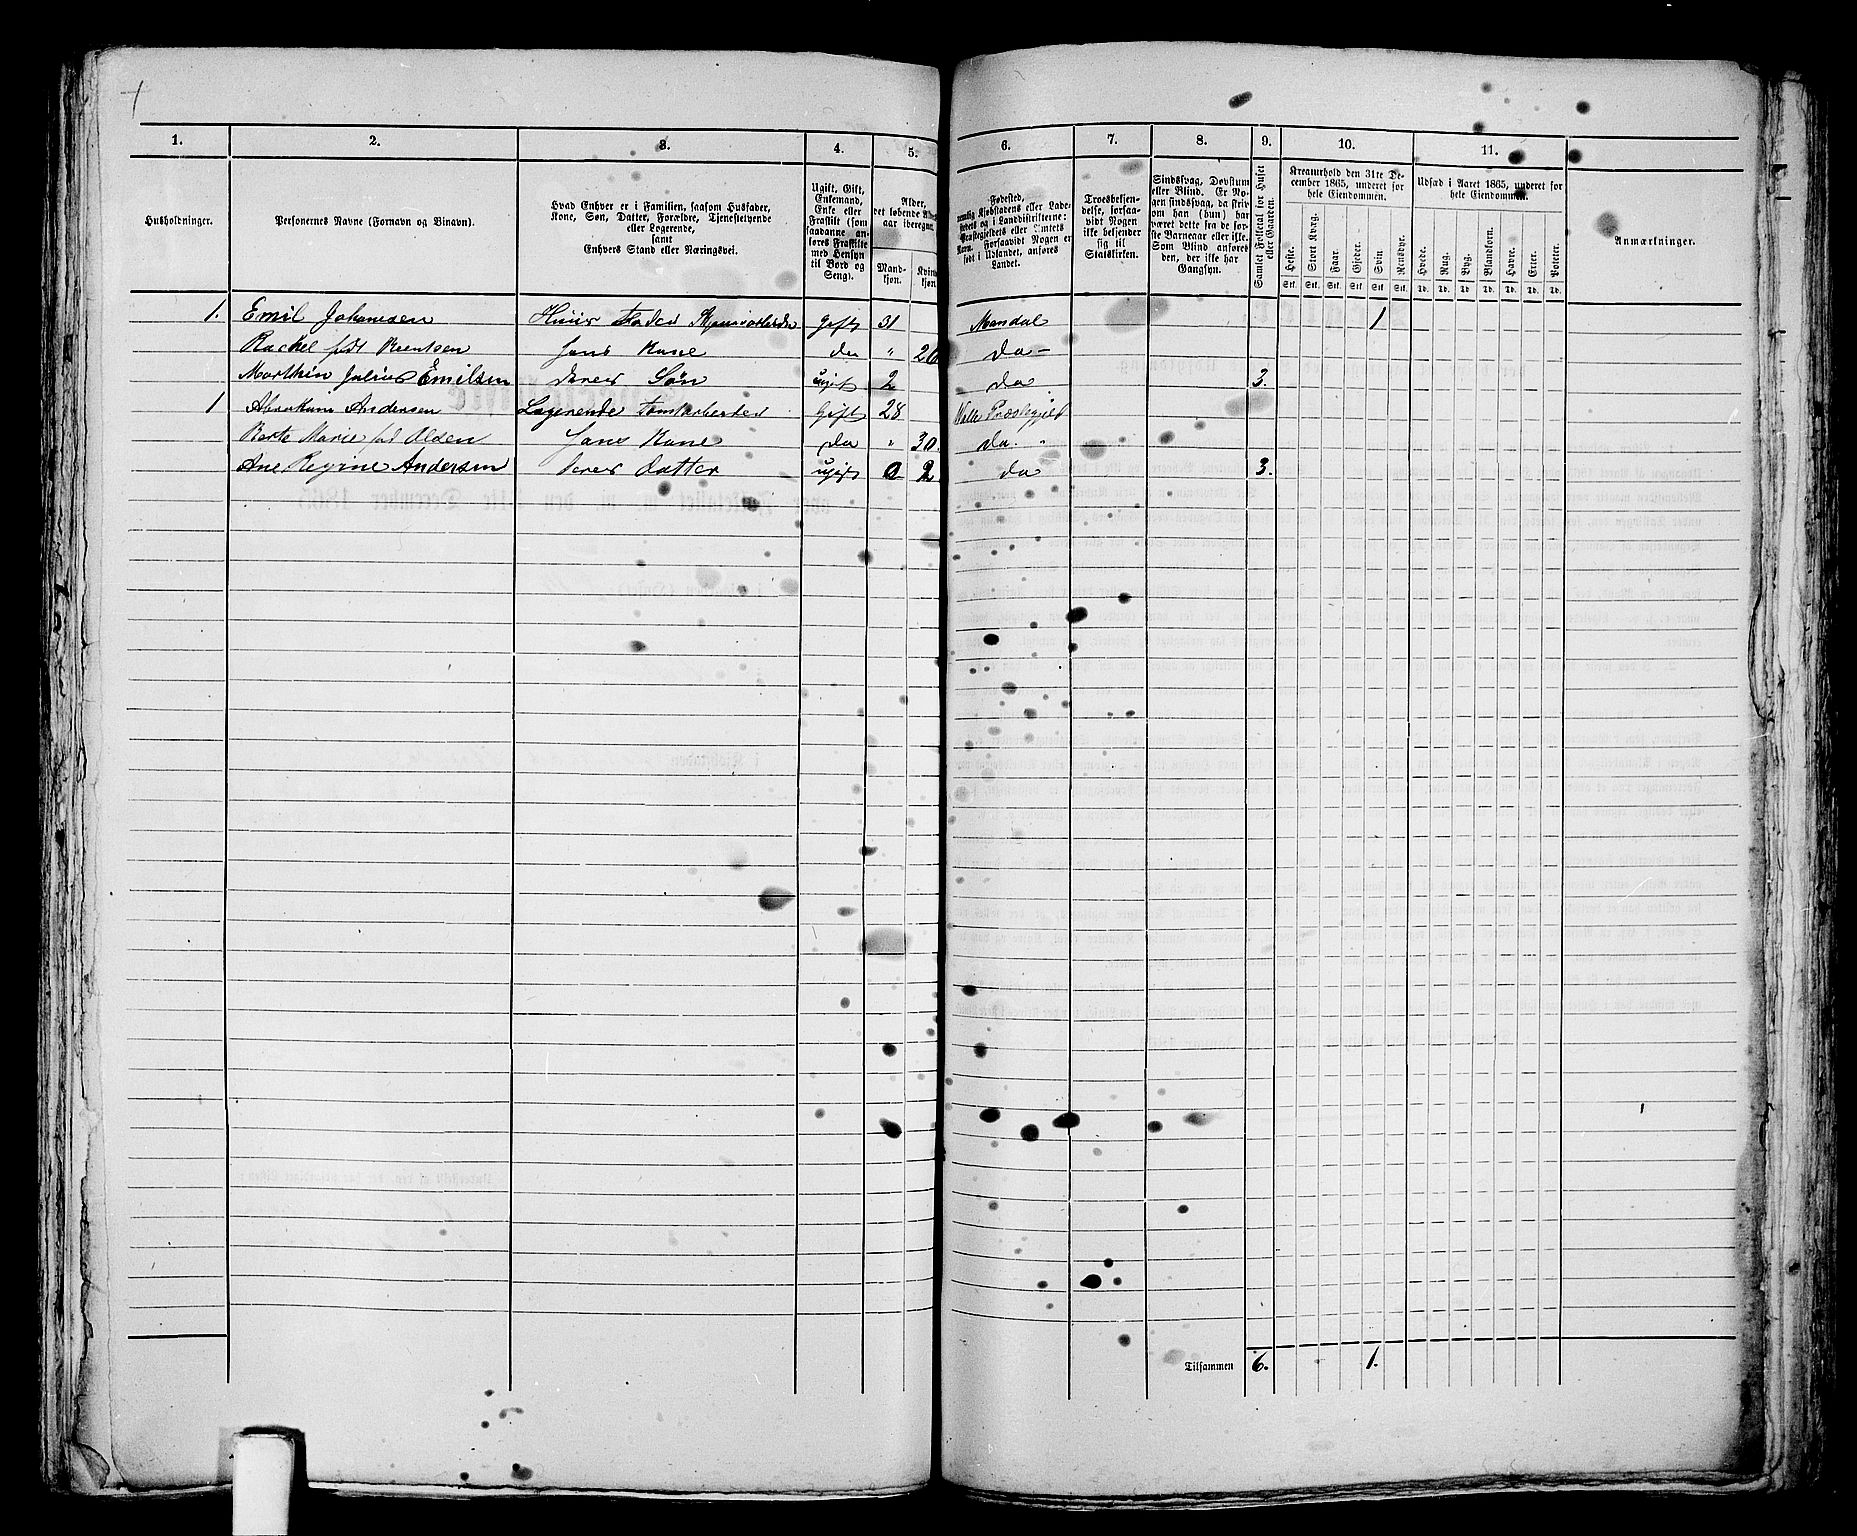 1. 2. 3. 4. 5. 6. 7. 8. 9. 10. 11.
Husholdninger.
Personernes Navne (Fornavn og Binavn).
Hvad Enhver er i Familien, saasom Husfader,
Kone, Søn, Datter, Forældre, Tjenestetyende
eller Logerende,
samt
Enhvers Stand eller Næringsvei.
Ugift, Gift,
Enkemand,
Enke eller
Fraskilt (som
saadanne an-
føres Fraskilte
med Hensyn
til Bord og
Seng).
Alder,
det løbende
aar iberegnet.
Mand-
kjøn.
Kvinde-
kjøn.
Fødested,
nemlig Kjøbstadens eller Lade-
stedets og i Landdistrikterne:
Præstegjeldets eller Amtets
Navn. Forsaavidt Nogen er
født i Udlandet, anføres
Landet.
Troesbekjen-
delse, forsaa-
vidt Nogen
ikke bekjender
sig til
Statskirken.
Sindssvag, Døvstum
eller Blind. Er No-
gen sindssvag, da skriv
om han (hun) har
været dette fra de før-
ste Barneaar eller ikke.
Som Blind anføres
den, der ikke har
Gangsyn.
Samlet Folketal for Huset
eller Gaarden.
Kreaturhold den 31te De-
cember 1865, underet for
hele Eiendommen.
Heste. Stort Kvæg. Faar. Gjeder. Svin Rensdyr.
Stk. Stk. Stk. Stk. Stk Stk.
Udsæd i Aaret 1865, underet for
hele Eiendommen.
Hvede. Rug. Byg. Blandkorn. Havre. Erter. Poteter.
Td. Td. Td Td. Td. Td. Td.
Anmærkninger.
1. Emil Johannesen Huus Fader Gift 31 Mandal 1
Rachel født Berntsen Hans Kone do " 26 do
Marthin Julius Emilsen deres Søn ugift 2 do 3.
1 Abraham Andersen Logerende Tomtarbeider Gift 28 Præstegjeld
Berte Marie Olden Hans Kone do " 30. do. "
Ane Regine Andersen deres datter ugift 0 2. do 3.
Tilsammen 6. 1.